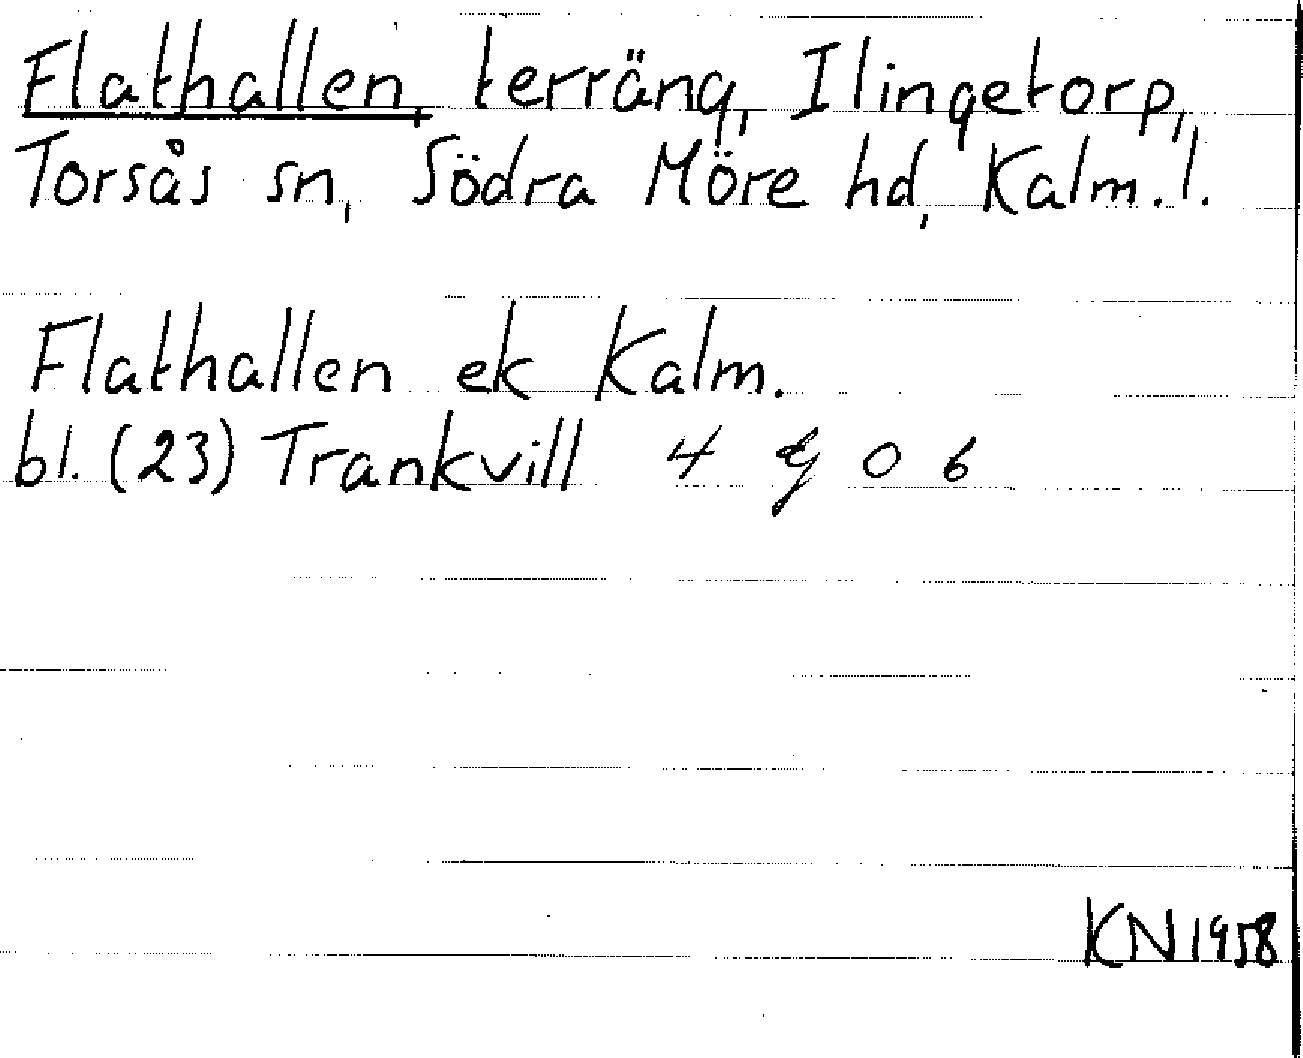 Flathallen, terräng, Ilingetorp,
Torsås sn, Södra Möre hd, Kalm. l.
Flathallen ek Kalm.
bl. (23) Trankvill 4 g 0 6
KN 1958